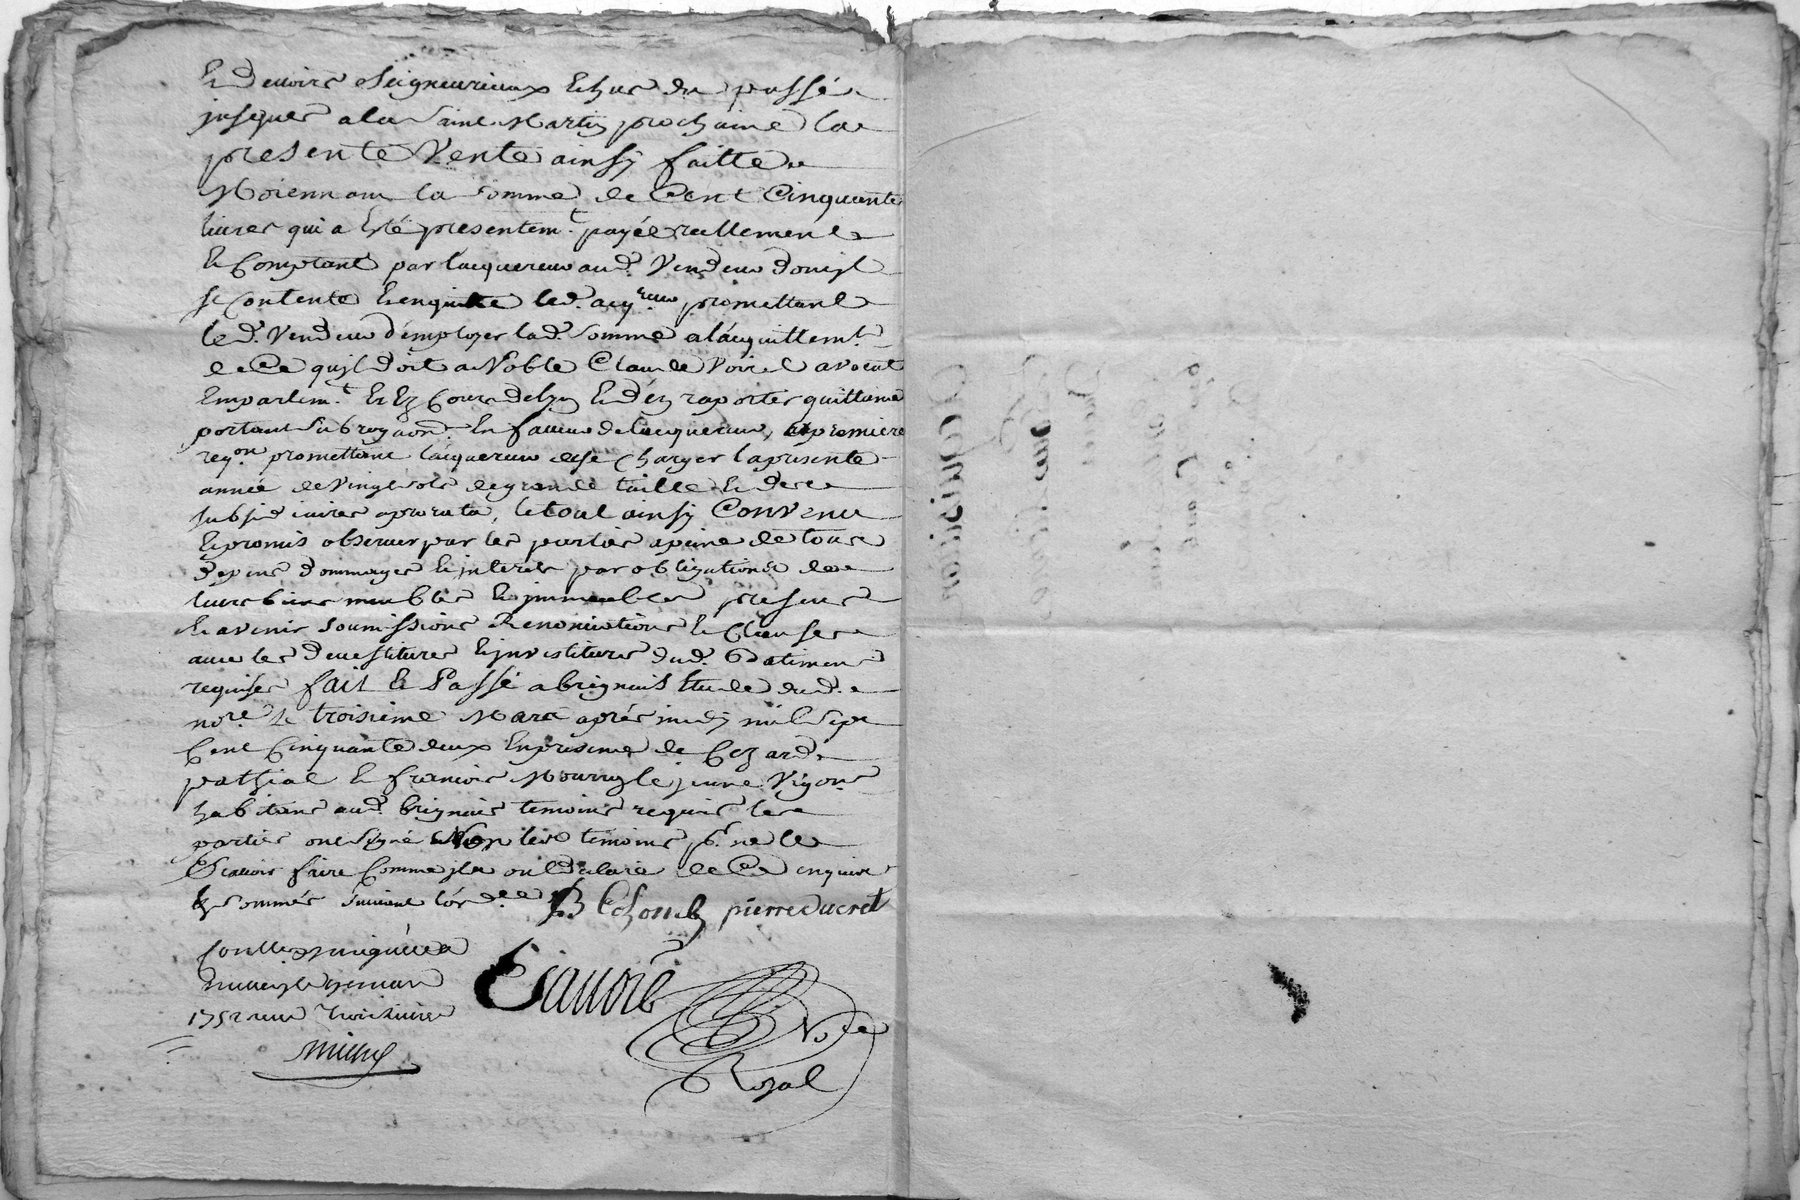 et devoirs Seigneuriaux Echus du passé
jusques a la Saint Martin prochaine la
presente Vente ainsy faitte
Moiennant la somme de Cent Cinquante
livres qui a Eté presentem.t payée reellement
et Comptant par lacquereur aud. Vendeur dont jl
se Contente et enquitte led. acq.reur promettant
led. Vendeur d'employer lad. somme a l'acquittem.t
de Ce qujl doit a Noble Claude Voiret avocat
En parlem.t et Ez Cours de lyon et d'en raporter quittance
portant subrogaon. En faveur de lacquereur, a premiere
reqon. promettant lacquereur de se Charger la presente
année de Vingt sols de grande taille et des
subsidiaires aprorata, le tout ainsy Convenu
et promis observer par les parties a peine de tous
depens dommages et jnterets par obligations de
leurs biens meubles et jmmeubles presens
et avenir soumissions Renonciations et Clauses
avec les devestitures et jnvestitures dud. Batiment
requises fait et Passé a brignais Etude dud.
no.re le troisieme Mars aprés midy mil sept
Cent Cinquante deux En presence de
pathial et francois Mourry le jeune Vigons.
habitans aud. brignais temoins requis les
parties ont signé Non les temoins p.r ne le
Scavoir faire Comme jls ont declaré de Ce enquis
Ez sommés suivant l'ord.ce B pierre ducret
Controllé
1752 recu trois livres
Nore
Royal